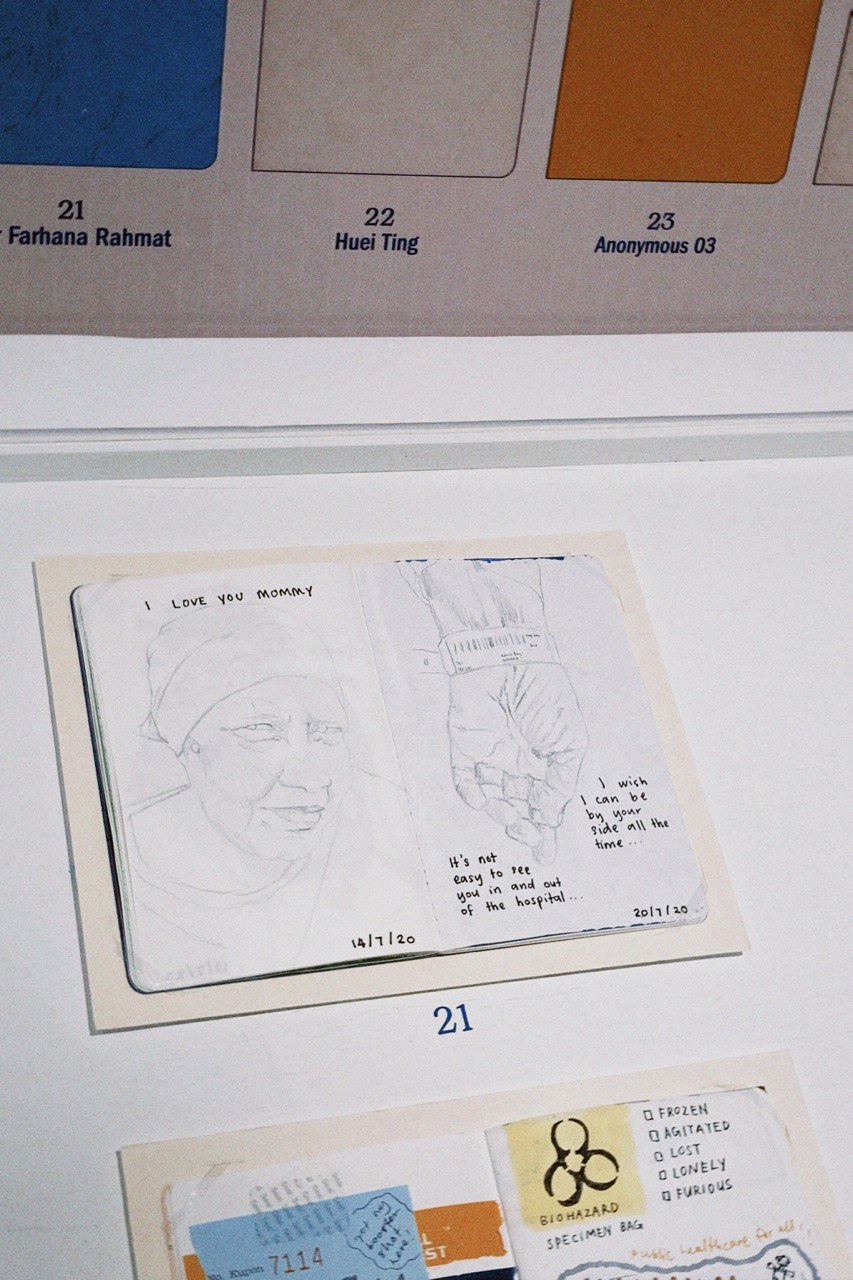 21
Farhana Rahmat
22
Huei Ting
23
Anonymous 03
I LOVE YOU MOMMY
14/7/20
I wish
I can be
by your
side all the
time...
It's not
easy to see
you in and out
of the hospital...
20/7/20
21
No Kupon 7114
you my
booster
shot
here!
ST
BIOHAZARD
SPECIMEN BAG
□ FROZEN
□ AGITATED
□ LOST
□ LONELY
□ FURIOUS
Public healthcare for all!